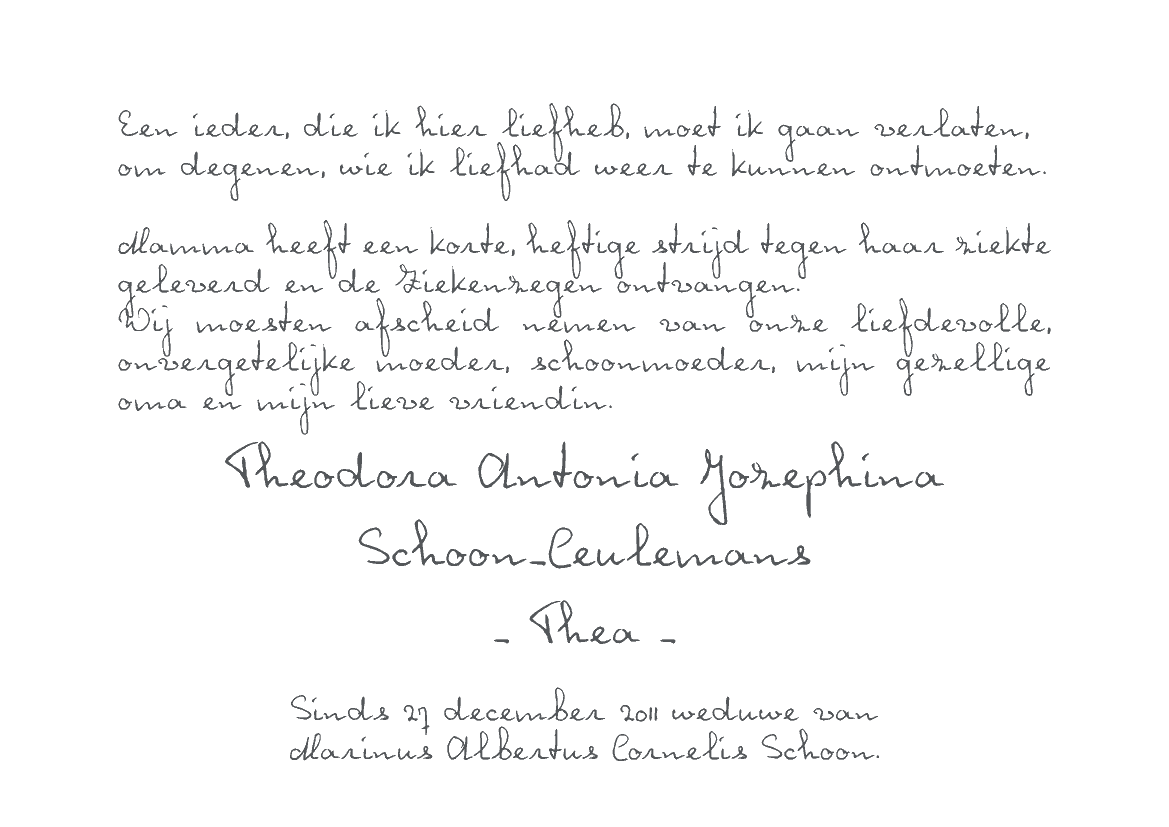 Een ieder, die ik hier liefheb, moet ik gaan verlaten,
om degenen, wie ik liefhad weer te kunnen ontmoeten.
Mamma heeft een korte, heftige strijd tegen haar ziekte
geleverd en de Ziekenzegen ontvangen.
Wij moesten afscheid nemen van onze liefdevolle,
onvergetelijke moeder, schoonmoeder, mijn gezellige
oma en mijn lieve vriendin.
Theodora Antonia Jozephina
Schoon-Ceulemans
- Thea -
Sinds 27 december 2011 weduwe van
Marinus Albertus Cornelis Schoon.